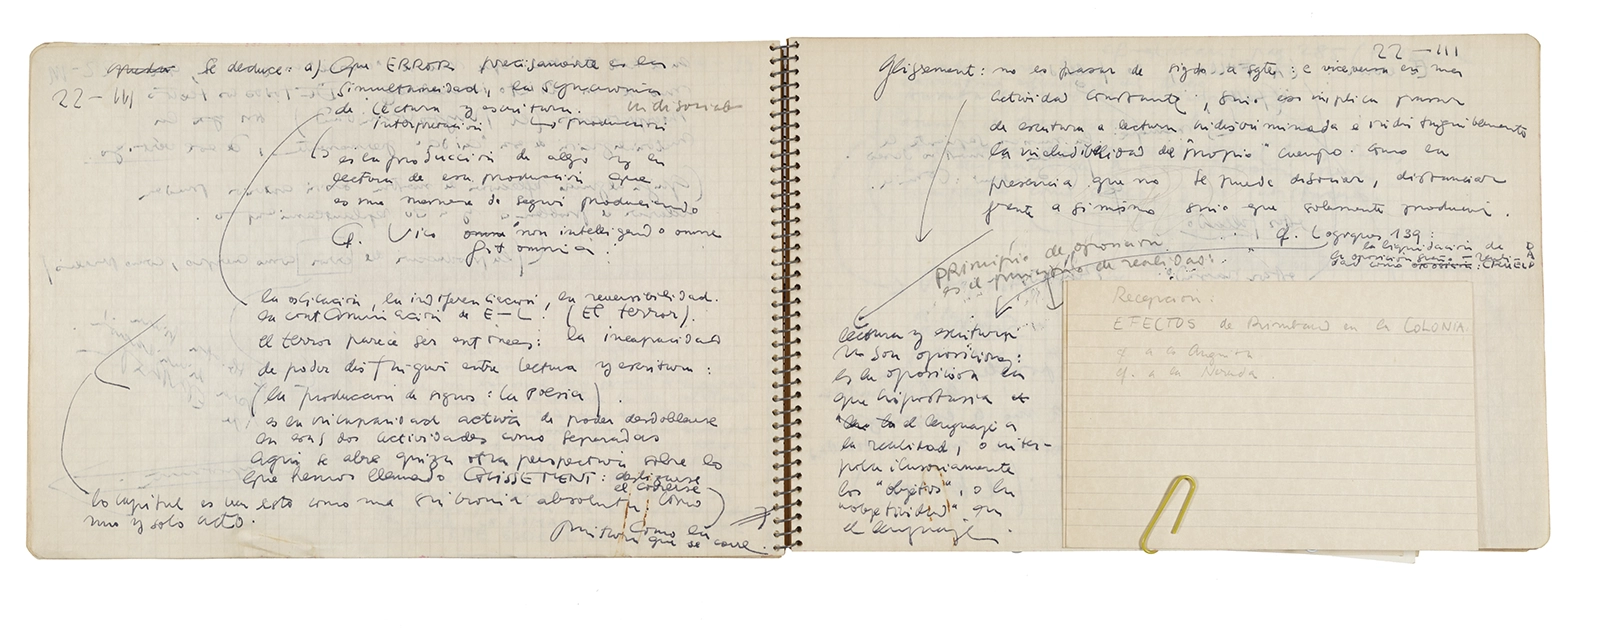 Se deduce: a) Que ERROR precisamente es la
22-III
simultaneidad, la synchronia
de lectura y escritura. indisociab
interpretación producción
es la producción de algo y la
lectura de esa producción que
es una manera de seguir produciendo
Cf. Vico non intelligendo omne
fit omnia:
la oscilación, la indiferenciación, la reversibilidad.
la contaminación de E-L. (El terror).
el terror parece ser entonces: la incapacidad
de poder distinguir entre lectura y escritura:
(la producción de signos: la poesía).
es la incapacidad activa de poder desdoblarse
en esas dos actividades como separadas
Aquí se abre quizá otra perspectiva sobre lo
que hemos llamado GLISSEMENT: deslizarse
el correrse
lo capital es ver esto como una sincronía absoluta, como
uno y solo acto.
como la
que se corre.
22-III
Glissement: no es pasar de sigdo a sgte: e viceversa en una
actividad constante, sino es implica pasar
de escritura a lectura indiscriminada e indistinguiblemente
la ineludibilidad del "propio" cuerpo. Como la
presencia que no se puede disociar, distanciar
frente a si mismo sino que solamente producir.
Cf. 139:
la liquidación de
la oposición sueño - reali-
dad como
PRINCIPIO de oposición
es el principio de realidad:
lectura y escritura
no son oposiciones:
es la oposición la
que hipostasia
el lenguaje a
la realidad, o inter-
pola ilusoriamente
los "objetos", o la
"objetividad" en
el lenguaje
Recepcion:
EFECTOS de Rimbaud en la COLONIA
cf. a la
cf. a la Neruda.